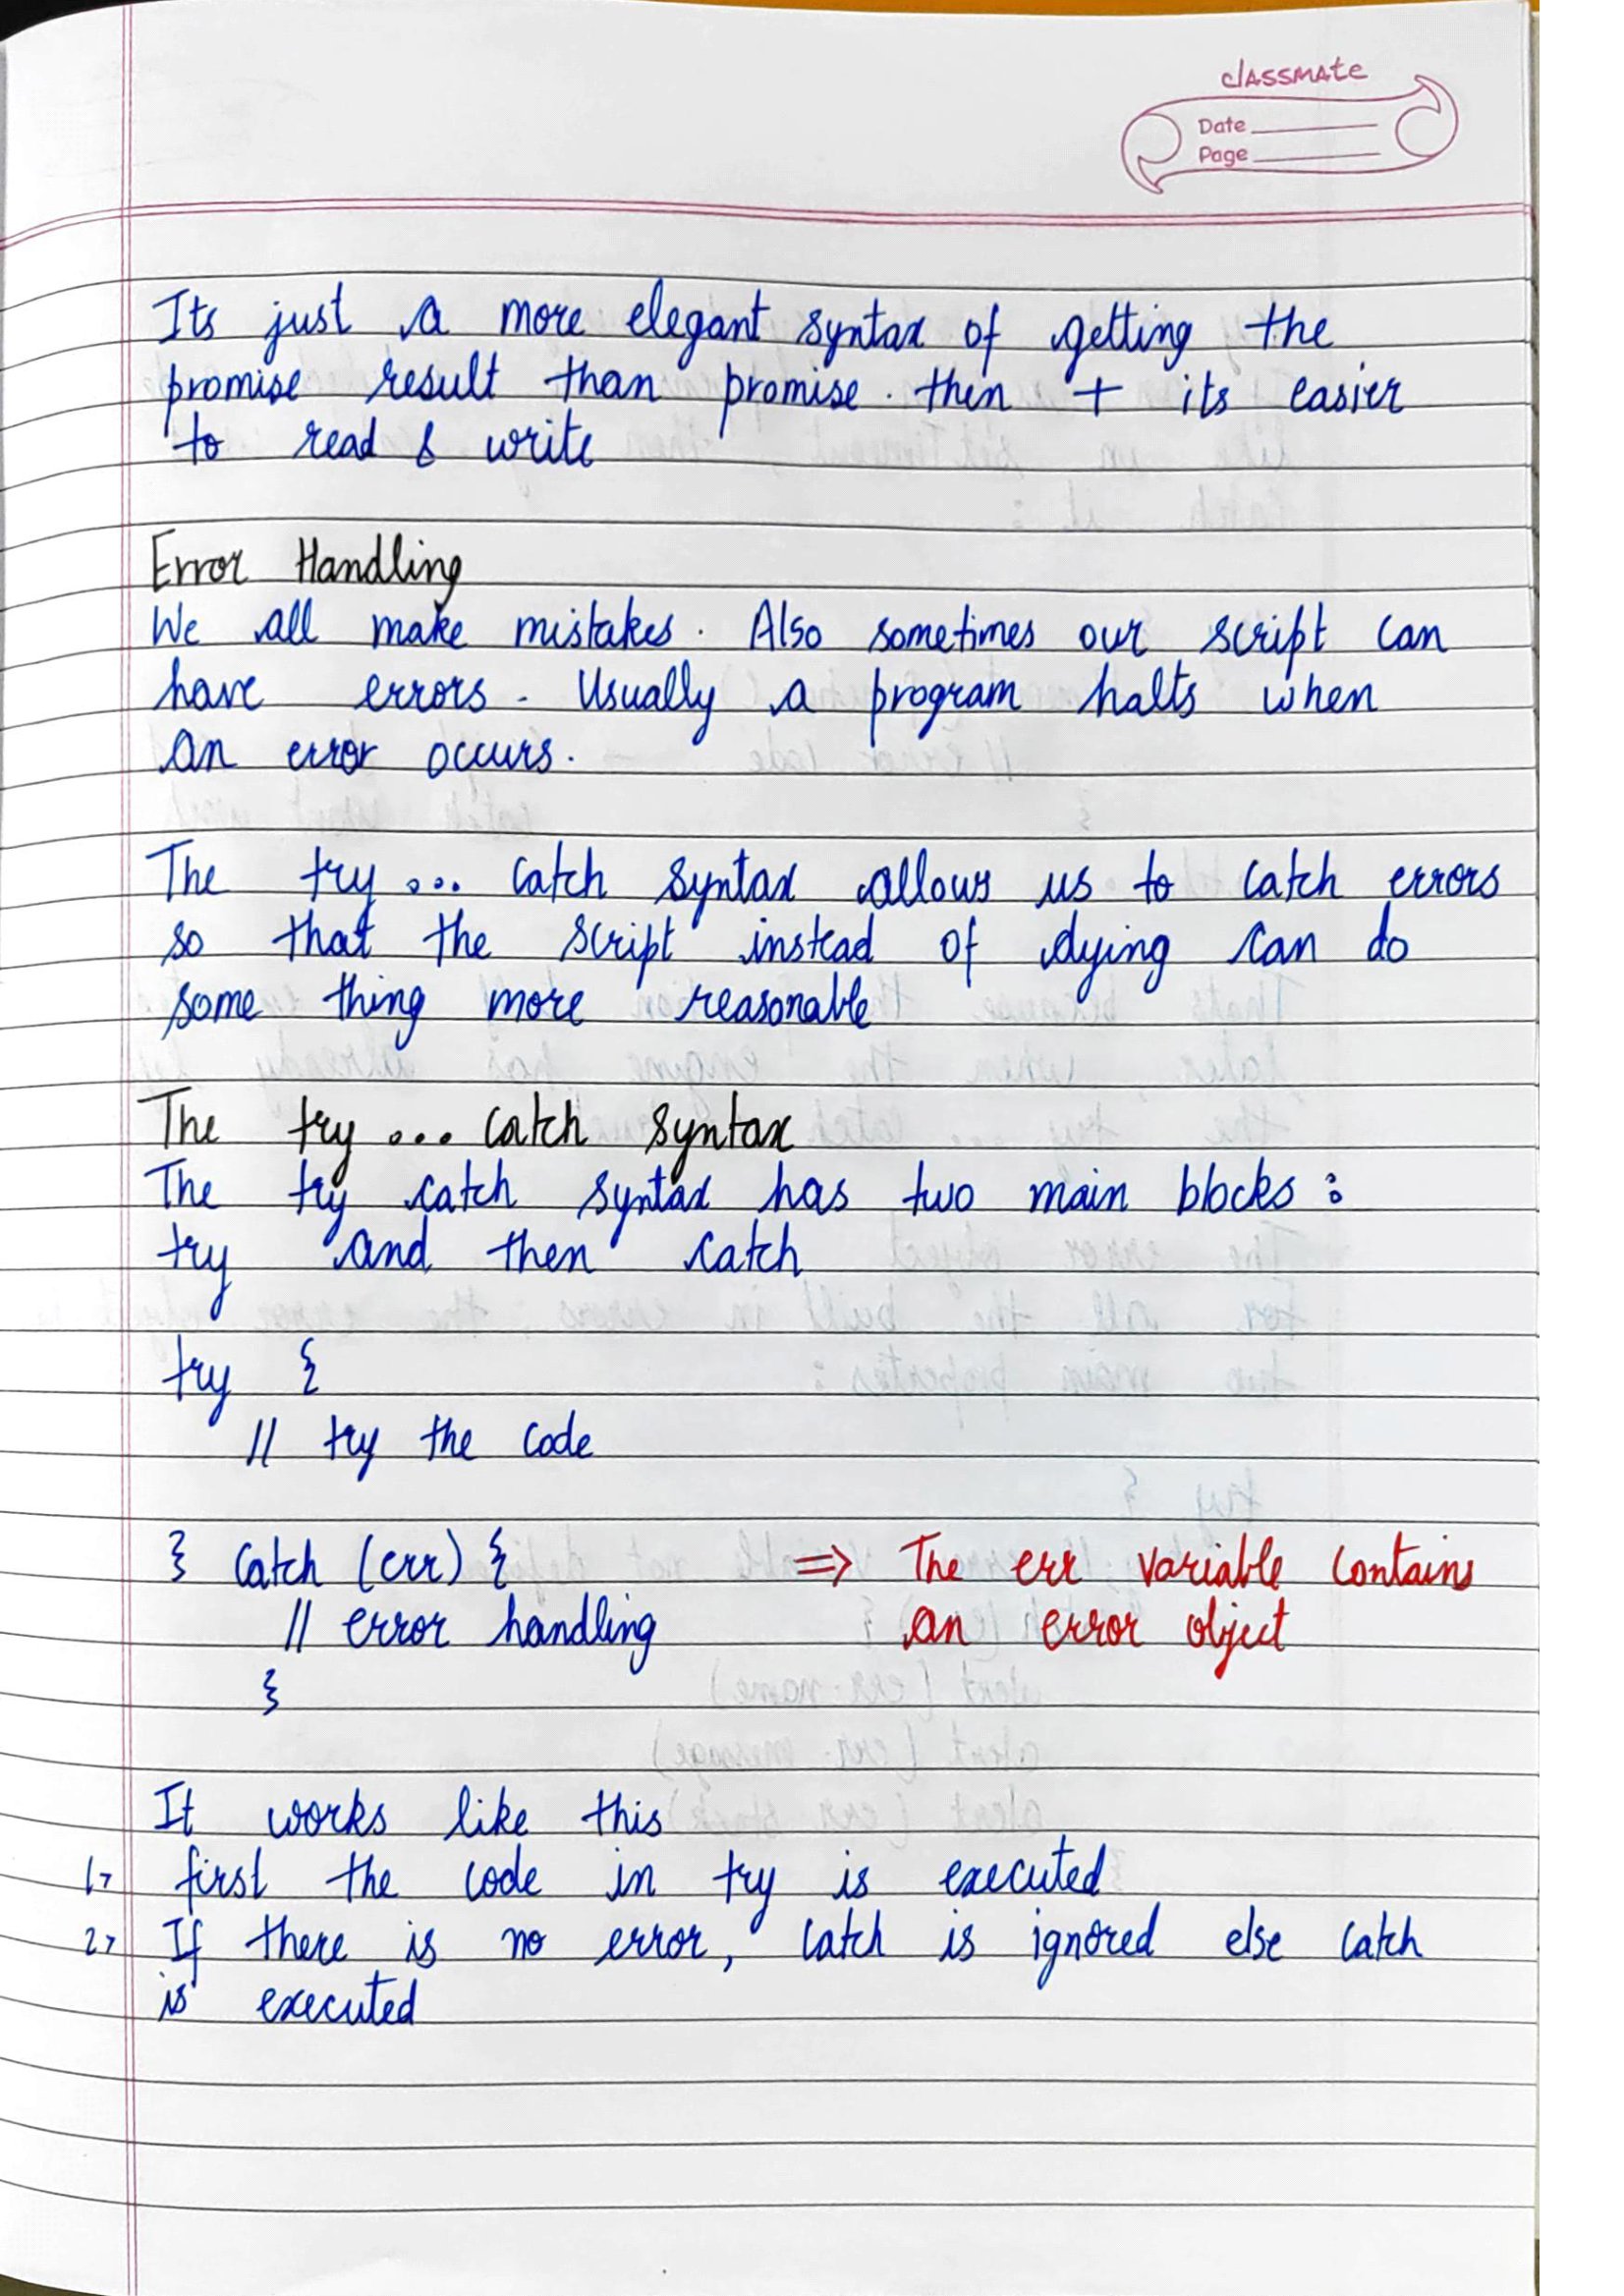 classmate
Date
Page
Its just a more elegant syntax of getting the
promise result than promise. then + its easier
to read & write
Error Handling
We all make mistakes. Also sometimes our script can
have errors. Usually a program halts when
an error occurs.
The try ... catch syntax allows us to catch errors
so that the script instead of dying can do
some thing more reasonable
The try ... catch syntax
The try catch syntax has two main blocks :
try and then catch
try {
// try the code
} catch (err) { => The err variable contains
// error handling an error object
}
It works like this
1> first the code in try is executed
2> If there is no error, catch is ignored else catch
is executed